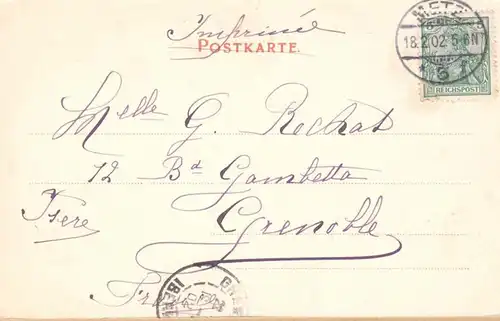 Imprimé
POSTKARTE.
METZ
18.2.02.5-6N
REICHSPOST
Melle G. Rochat
12 Bd Gambetta
Isere
Grenoble